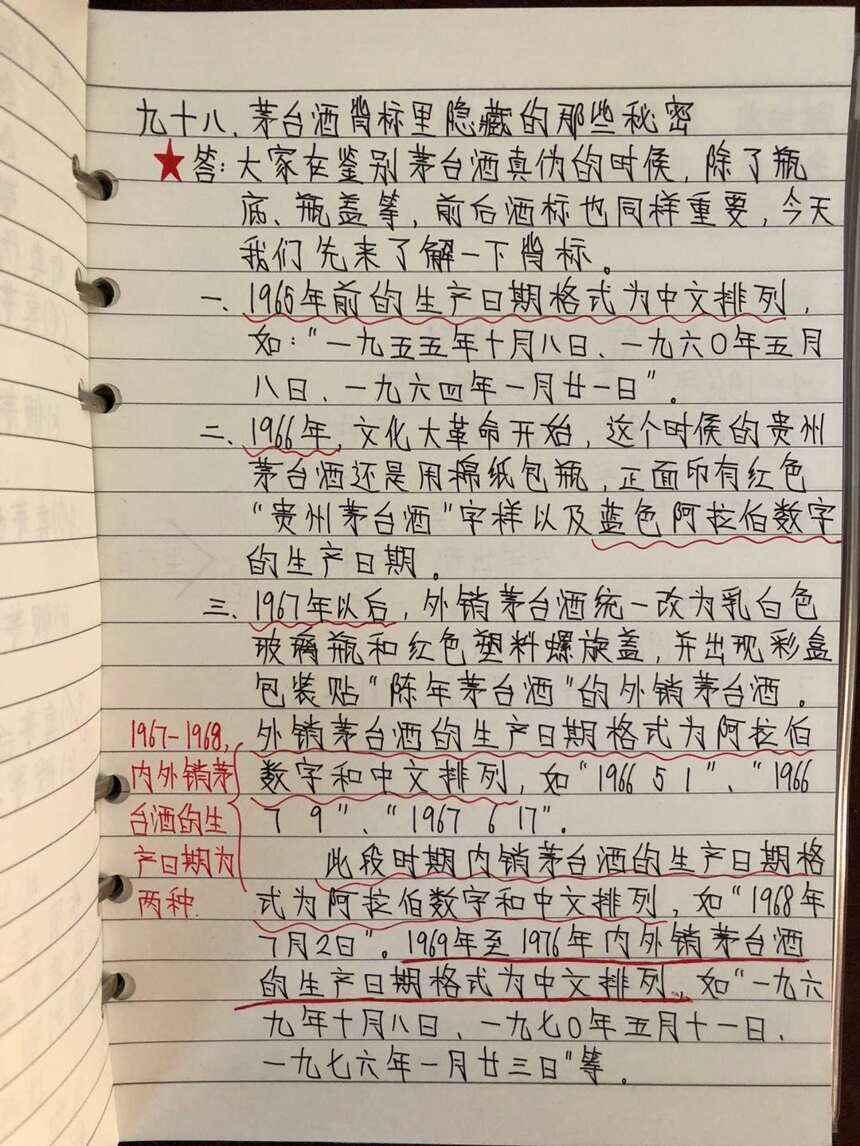 九十八、茅台酒背标里隐藏的那些秘密
★答:大家在鉴别茅台酒真伪的时候,除了瓶
底、瓶盖等,前后酒标也同样重要,今天
我们先来了解一下背标。
一、1965年前的生产日期格式为中文排列,
如:“一九五五年十月八日、一九六〇年五月
八日、一九六四年一月廿一日”。
二、1966年,文化大革命开始,这个时候的贵州
茅台酒还是用棉纸包瓶,正面印有红色
“贵州茅台酒”字样以及蓝色阿拉伯数字
的生产日期。
三、1967年以后,外销茅台酒统一改为乳白色
玻璃瓶和红色塑料螺旋盖,并出现彩盒
包装贴“陈年茅台酒”的外销茅台酒。
外销茅台酒的生产日期格式为阿拉伯
数字和中文排列,如“1966 5 1”、“1966
7 9”、“1967 6 17”。
此段时期内销茅台酒的生产日期格
式为阿拉伯数字和中文排列,如“1968年
7月2日”。1969年至1976年内外销茅台酒
的生产日期格式为中文排列,如“一九六
九年十月八日、一九七〇年五月十一日、
一九七六年一月廿三日”等。
1967-1968,
内外销茅
台酒的生
产日期为
两种.